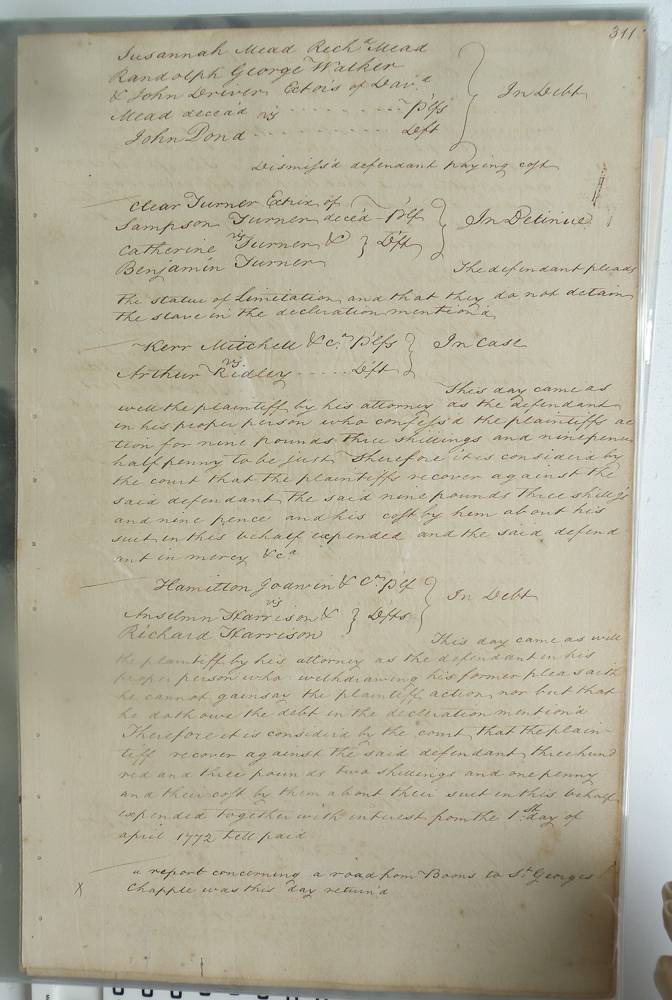 311
Susannah Mead Richd Mead
Randolph George Walker
& John Driver Ectors of Davd
Mead deceas'd vs Plfs In Debt
John Pond Deft
Dismiss'd defendant paying cost
Clear Turner Extrix of
Sampson Turner deced Plf In Detinue
vs
Catherine Turner & Dfts
Benjamin Turner
The defendant pleads
the statue of Limitation and that they do not detain
the slave in the declaration mention'd
Kerr Mitchell & Co Plfs In Case
vs
Arthur Ridley Deft
This day came as
well the plaintiff by his attorney as the defendant
in his proper person who confess'd the plaintiffs ac
tion for nine pounds three shillings and ninepence
half penny to be just Therefore it is consider'd by
the court that the plaintiffs recover against the
said defendant the said nine pounds three shill'gs
and nine pence and his cost by him about his
suit in this behalf expended and the said defend
ant in mercy &ca
Hamilton Godwin & Co Plf In Debt
vs
Anselmn Harrison & Dfts
Richard Harrison
This day came as well
the plaintiff by his attorney as the defendant in his
proper person who withdrawing his former plea saith
he cannot gainsay the plaintiff action, nor but that
he doth owe the debt in the declaration mention'd
Therefore it is consider'd by the court that the plain-
tiff recover against the said defendant three hund
red and three pounds two shillings and one penny
and their cost by them about their suit in this behalf
expended together with interest from the 1st day of
april 1772 till paid
a report concerning a road from Boons to St Georges
X Chapple was this day return'd